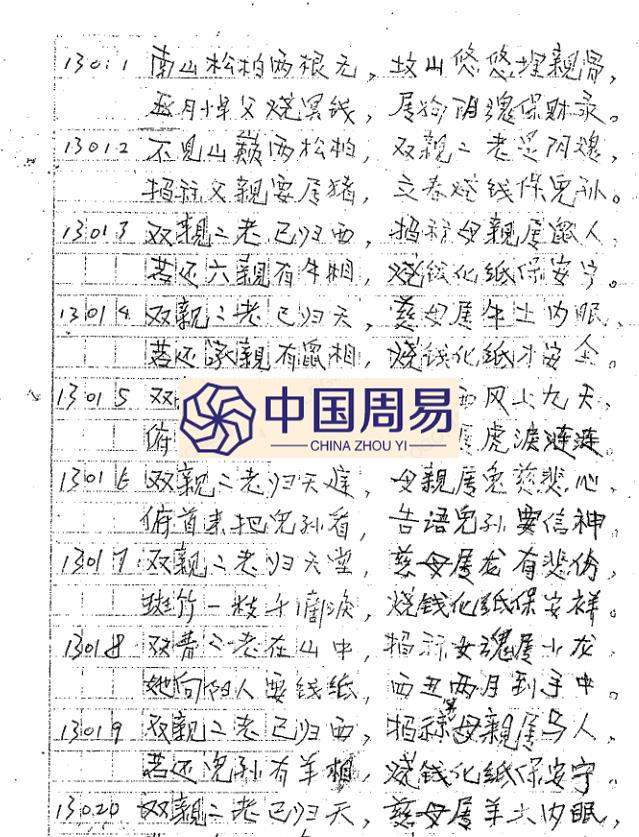 13011 南山松柏两根无，故山悠悠埋亲骨，
月悼父烧冥钱，属狗阴魂保财录。
13012 不见山巅两松柏，双亲二老是阴魂，
招称父亲要属猪，立春烧钱保儿孙。
13013 双亲二老已归西，招称母亲属鼠人，
若还六亲有牛相，烧钱化纸保安宁。
13014 双亲二老已归天，慈母属牛土内眠，
若还亲有鼠相，烧钱化纸才安全。
13015 双 西风上九天，
俯 属虎泪涟涟。
中国周易
CHINA ZHOU YI
13016 双亲二老归天庭，母亲属兔慈悲心，
俯首来把儿孙看，告语儿孙要信神。
13017 双亲二老归天堂，慈母属龙有悲伤，
斑竹一枝千滴泪，烧钱化纸保安祥。
13018 双青二老在山中，招称女魂属小龙，
她向阴人要钱纸，西丑两月到手中。
13019 双亲二老已归西，招称母亲属马人，
若还儿孙有羊相，烧钱化纸保安宁。
13020 双亲二老已归天，慈母属羊土内眠，